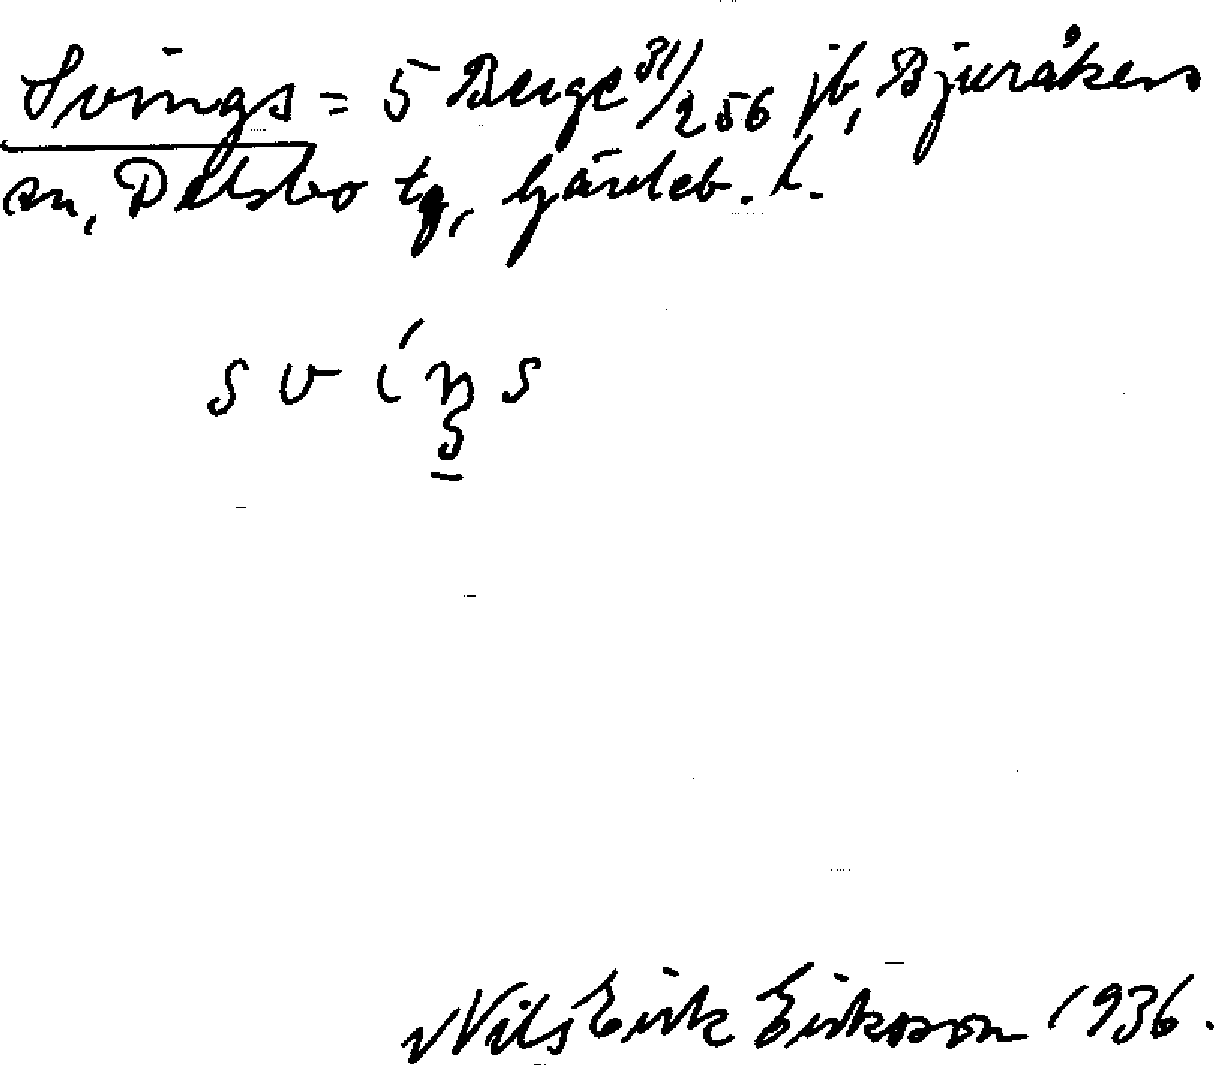 Svings = 5 Berge 31/256 jb, Bjuråkers
sn, Delsbo tg, Gävleb. l.
svíŋs
Nils Erik Eriksson 1936.